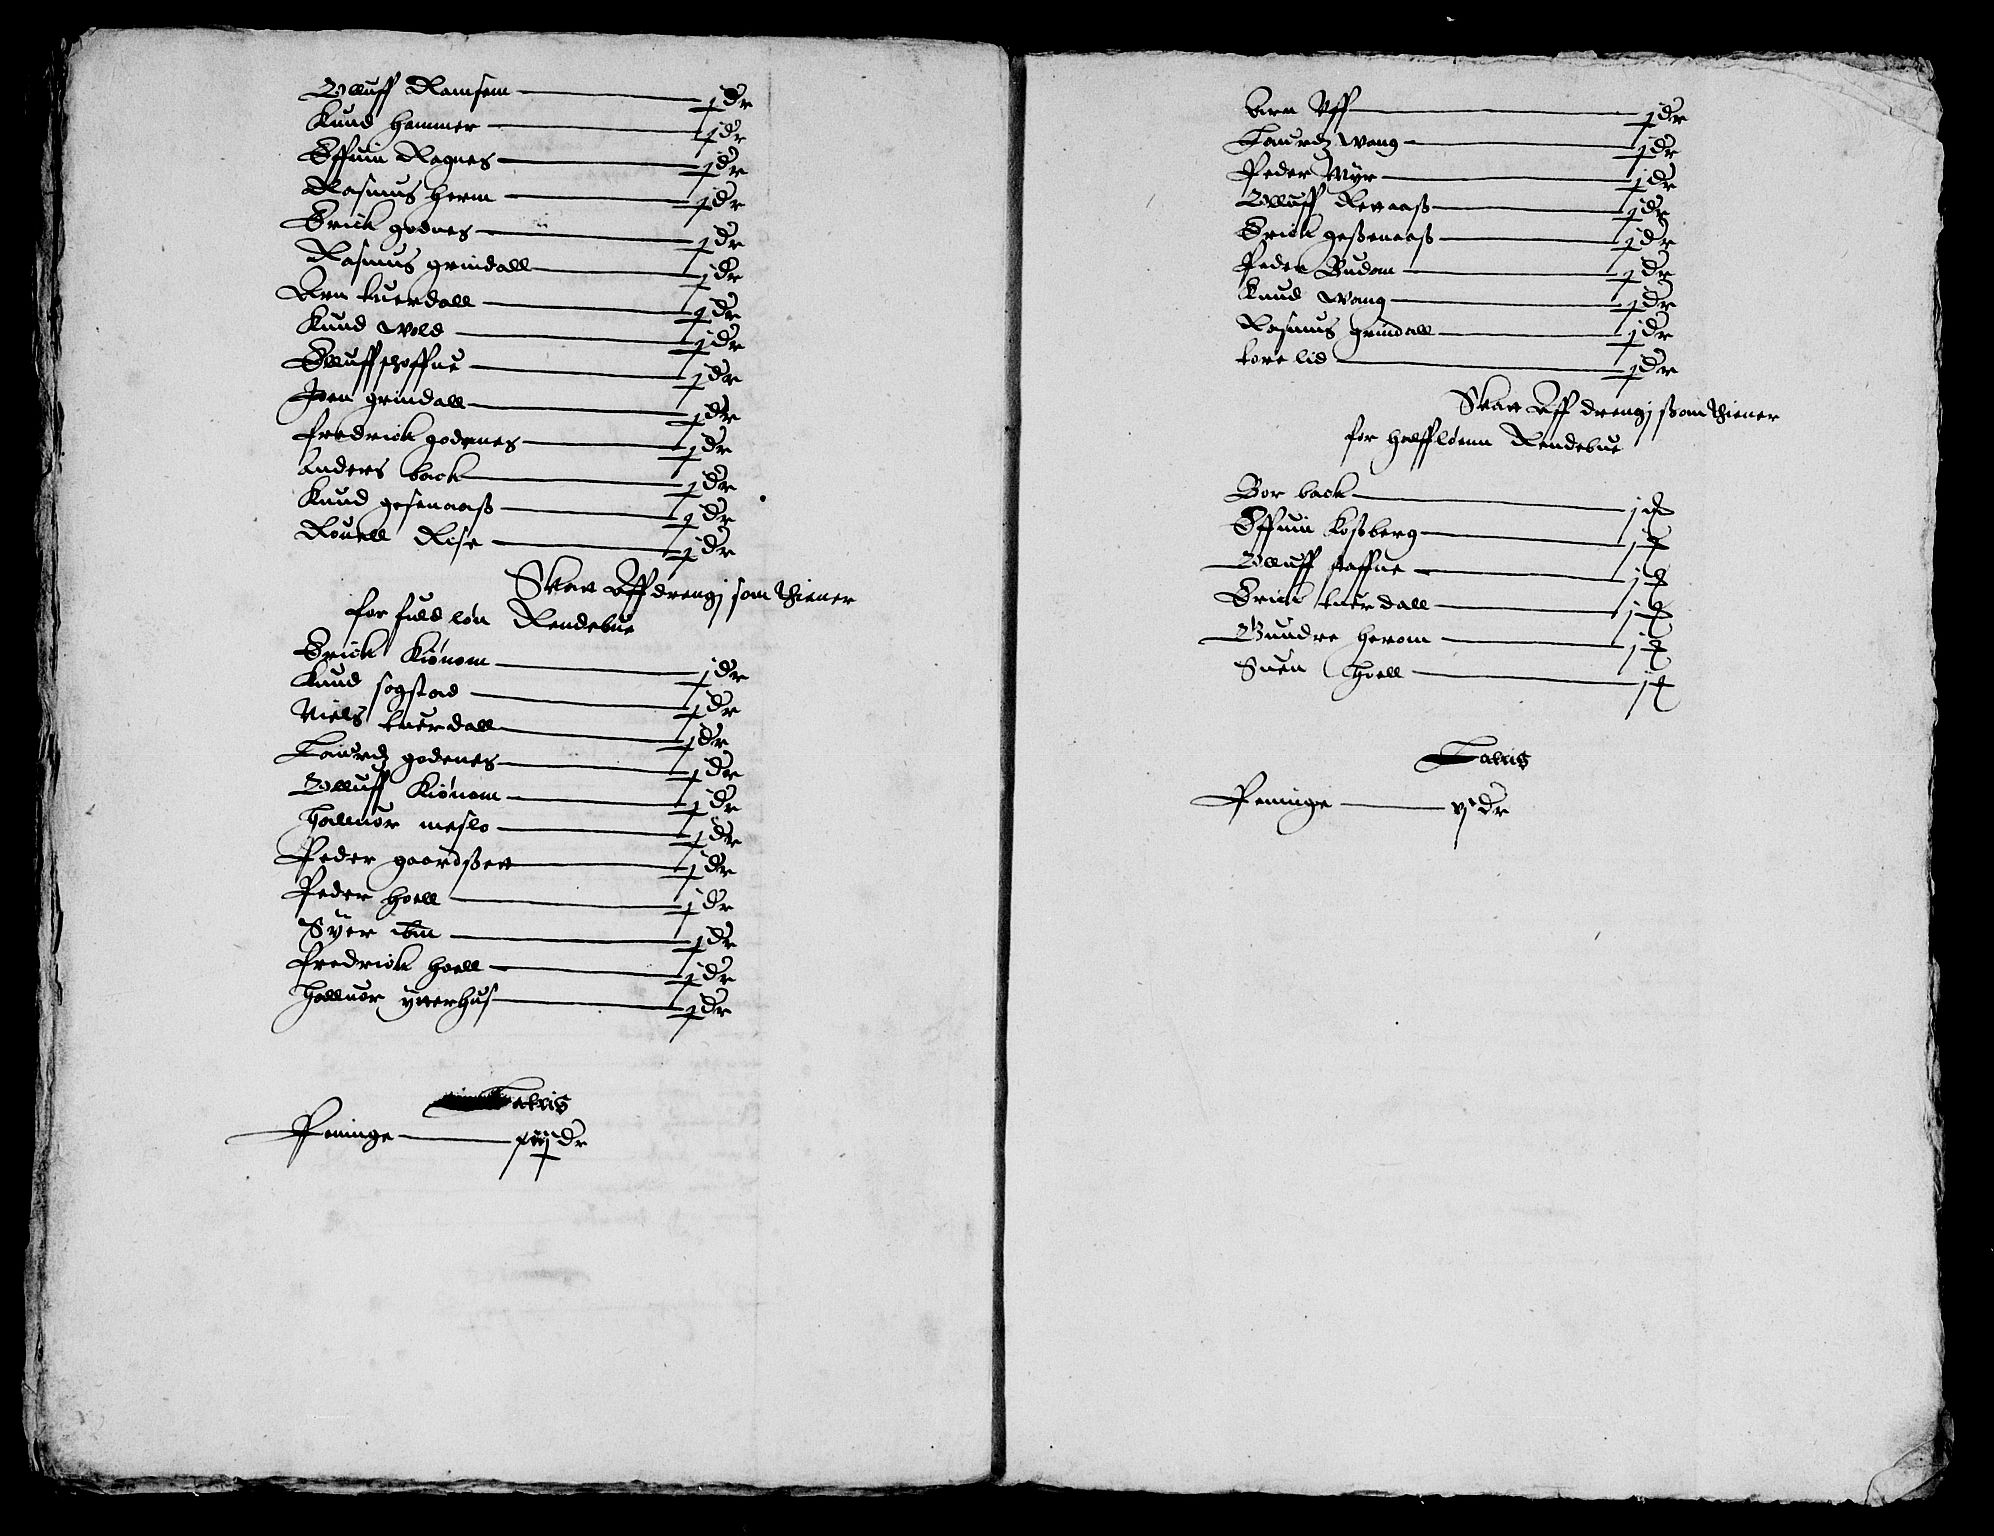 Olluff Ramsem — j dr
Knud hammer — j dr
Effuin Ragnes — j dr
Rasmus herem — j dr
Erick godnes — j dr
Rasmus grindall — j dr
Arn tuerdall — j dr
Knud wold — j dr
Olluff schoffue — j dr
Joen grindall — j dr
fredrick godenes — j dr
anders back — j dr
Knud gesenaaß — j dr
Rouell Rise — j dr
Skatt Aff drengj som thiener
for fuld løn Rendebue
Erick Kiønom — j dr
Knud sogstad — j dr
Niels tuerdall — j dr
Laurdz godenes — j dr
Olluff Kiønom — j dr
halluor meslo — j dr
Peder gaardßett — j dr
Peder hoell — j dr
Syer — j dr
fredrick hoell — j dr
halluor ytterhus — j dr
Latris
Peninge — dr
Arn Uff — j dr
Laurdz wang — j dr
Peder Myr — j dr
Olluff Reuaaß — j dr
Erick geßenaaß — j dr
Peder Budom — j dr
Knud wang — j dr
Rasmus grindall — j dr
tore lid — j dr
Skatt Aff drengj ßom thiener
for halff lønn Rendebue
Bor back — j
Effuin Koßberg — j
Olluff staffue — j
Erick tuerdall — j
Gundre herom — j
Suen hoell — j
Latris
Peninge — vj dr